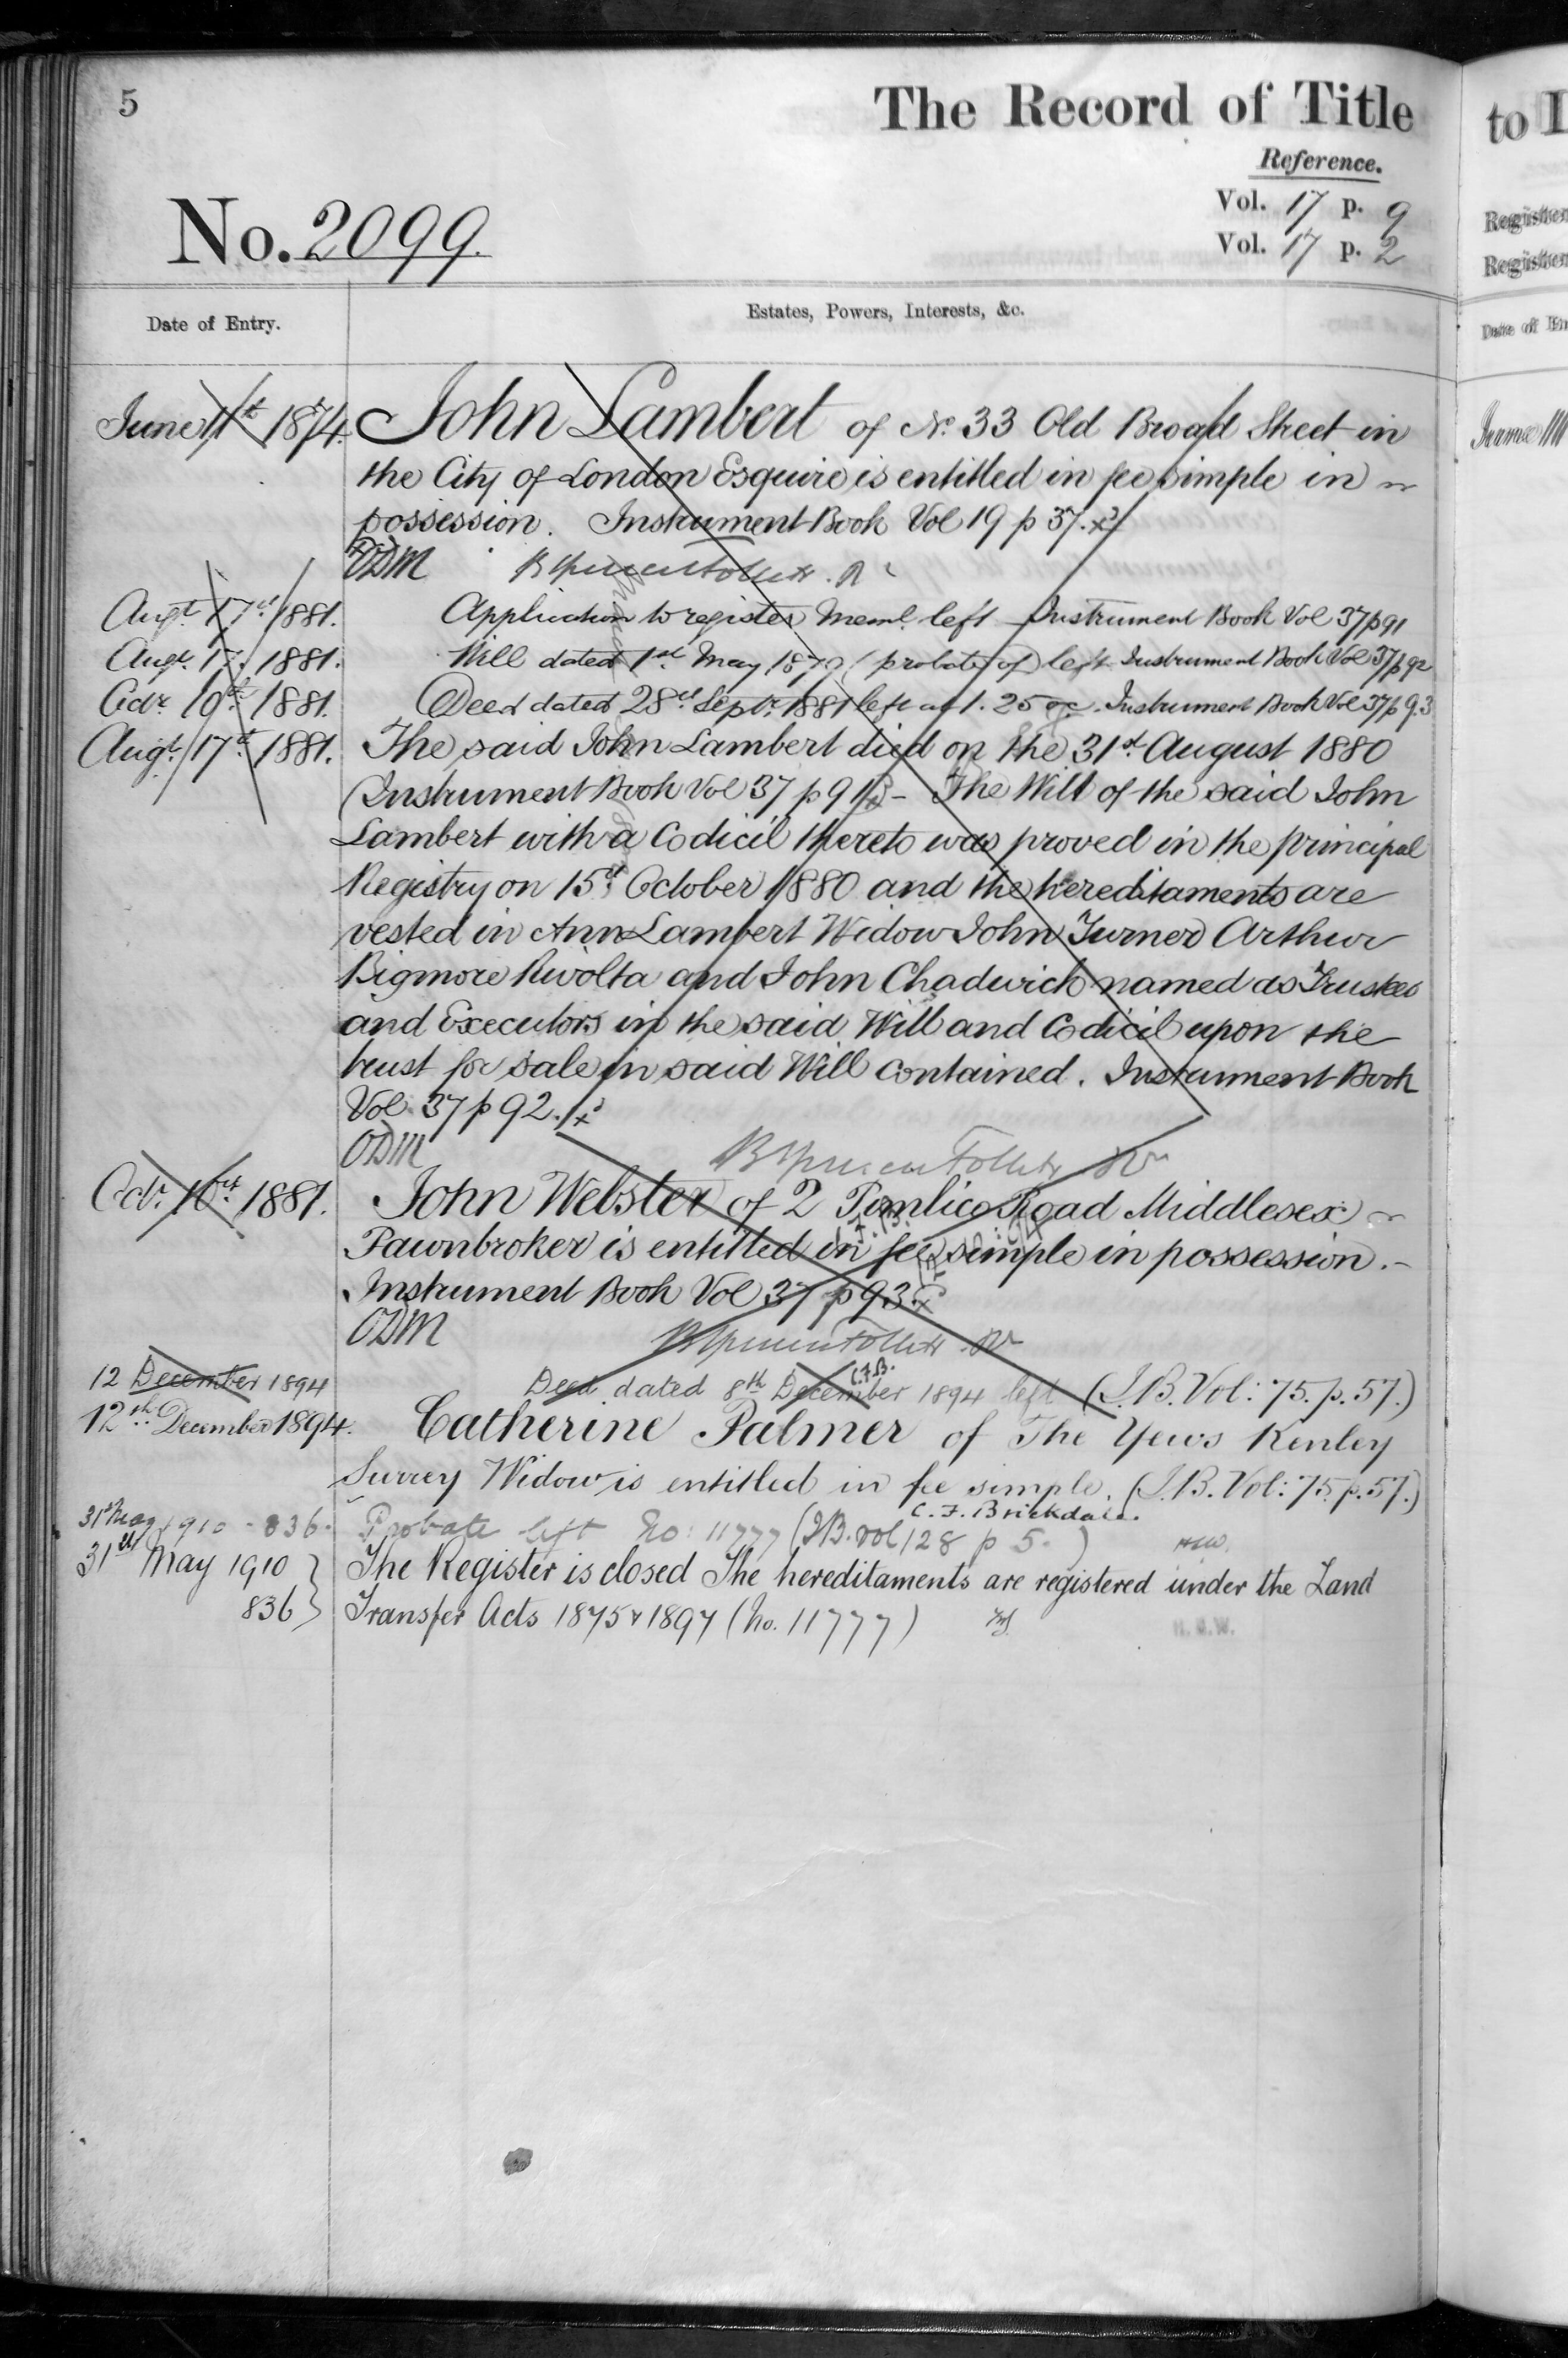 5
The Record of Title
Reference.
No. 2099.
Vol. 17 p. 9
Vol. 17 p. 2
Date of Entry.
Estates, Powers, Interests, &c.
June 11th 1874. John Lambert of No. 33 Old Broad Street in
the City of London Esquire is entitled in fee simple in
possession. Instrument Book Vol 19 p 37.
ODM
Augt. 17th 1881. Application to register Meml. left Instrument Book Vol 37 p 91
Augt. 17. 1881. Will dated 1st May 1879 (probate of) left Instrument Book Vol 37 p 92
Octr. 10th 1881. Deed dated 28th Septr. 1881 left at 1.25 Instrument Book Vol 37 p 93
Augt. 17th 1881. The said John Lambert died on the 31st August 1880
(Instrument Book Vol 37 p 91) - The Will of the said John
Lambert with a Codicil thereto was proved in the principal
Registry on 15th October 1880 and the hereditaments are
vested in Ann Lambert Widow John Turner Arthur
Bigmore Rivolta and John Chadwick named as Trustees
and Executors in the said Will and Codicil upon the
trust for sale in said Will contained. Instrument Book
Vol 37 p 92.
ODM
Octr. 10th 1881. John Webster of 2 Pimlico Road Middlesex
Pawnbroker is entitled in fee simple in possession. -
Instrument Book Vol 37 p 93.
ODM
C.F.B.
12 December 1894 Deed dated 8th December 1894 left (I.B. Vol: 75. p. 57.)
12th December 1894. Catherine Palmer of The Yews Kenley
Surrey Widow is entitled in fee simple. (I.B. Vol: 75. p. 57.)
C. F. Brickdale.
31st May 1910 - 836. Probate left No: 11777 (I.B. vol 128 p 5.)
31st May 1910 The Register is closed The hereditaments are registered under the Land
836 Transfer Acts 1875 & 1897 (No. 11777)
to
Date of
June